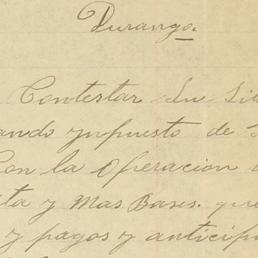 Durango.
Contestar Su
ando ympuesto de
Con la Operacion
ta y Mas Bases. que
y pagos y anticip